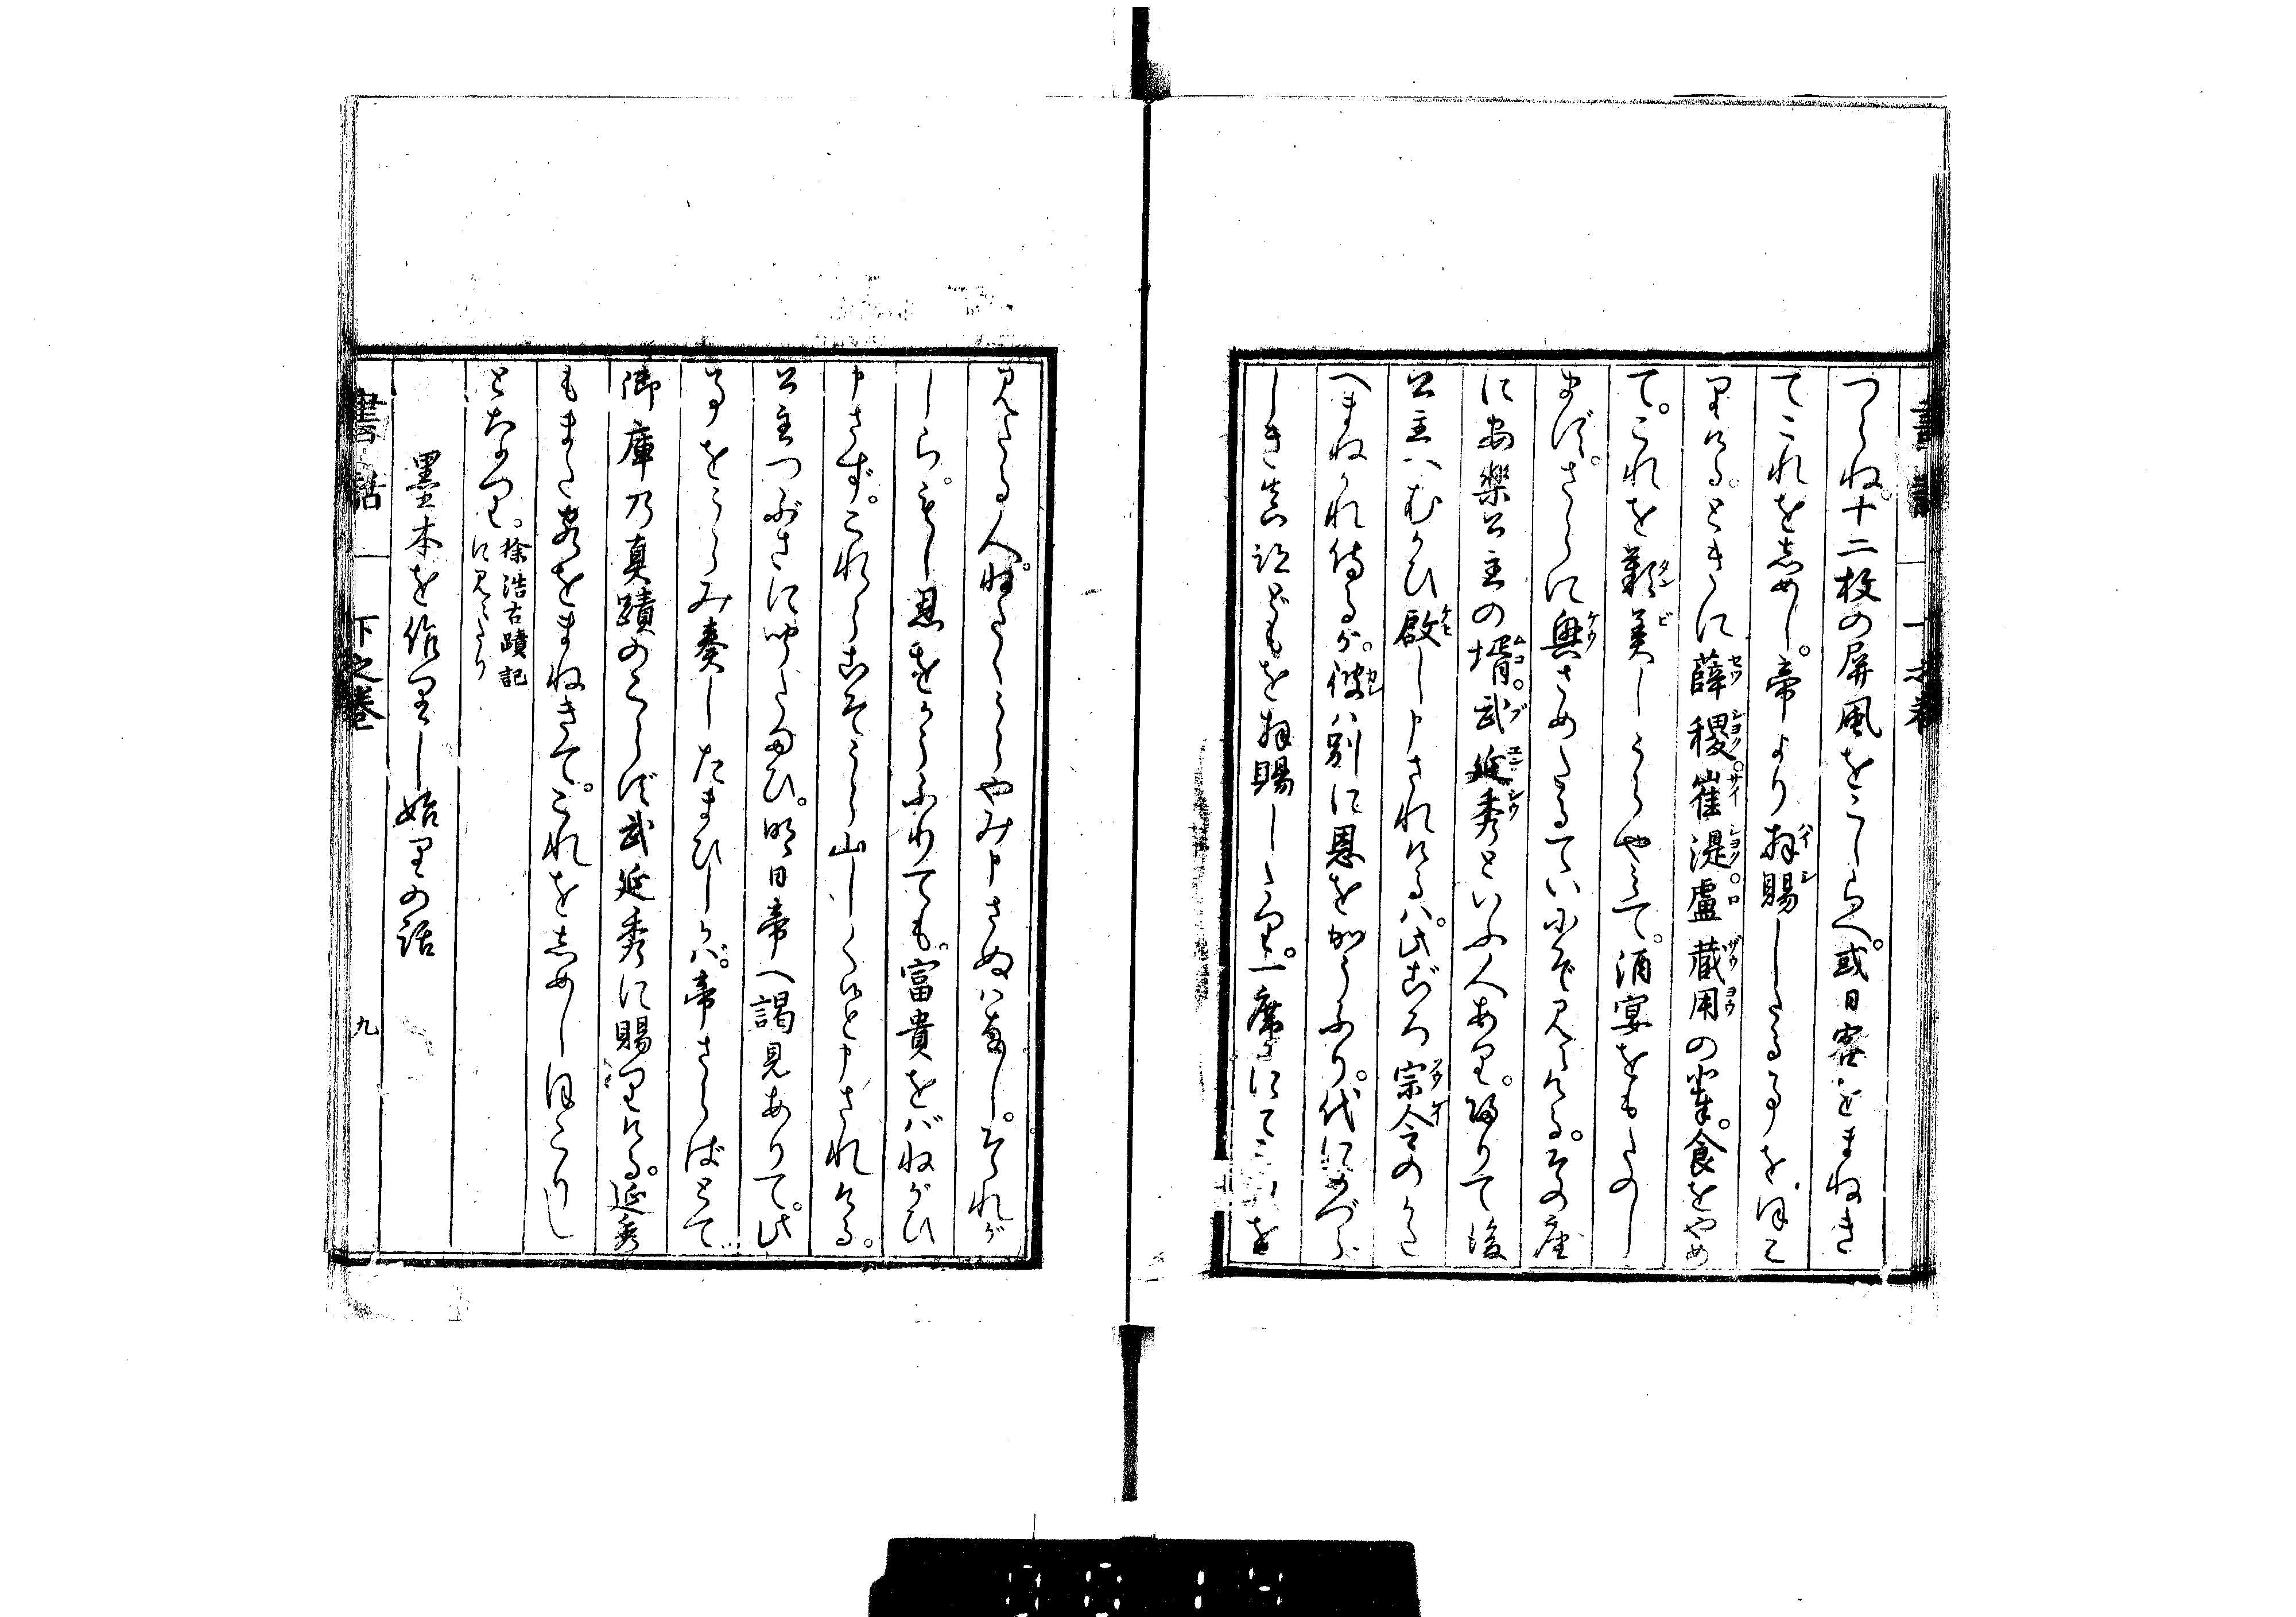 つらね。十二枚の屏風をこしらへ。或日客をまねき
てこれを志めし。帝より拝賜したる事をほこ
りける。ときに薛稷。崔湜。盧蔵用の輩。食をやめ
て。これを歎美しうらやみて。酒宴をもたのし
まず。さらに興さめたるていにぞ見えける。その座
に安楽公主の壻。武延秀といふ人あり。帰りて後
公主へむかひ啓し申されけるハ。此ごろ宗令のかた
へまねかれ侍るが。彼ハ別に恩を加うふり。代にめづら
しき真跡どもを拝賜したり。一席にてこれを
見たる人。みなうらやみ申さぬハなし。それが
しら。もし恩をかうふりても。富貴をバねがひ
申さず。これらこそうらやましく候と申されける。
公主つぶさに聞たまひ。明日帝へ謁見ありて。此
事をうらみ奏したまひしかバ。帝さらばとて
御庫乃真蹟のこらず武延秀に賜りける。延秀
もまた客をまねきて。これを志めしほこりし
となり。徐浩古蹟記
に見えたり
墨本を作りし始りの話
書話
下之巻
九